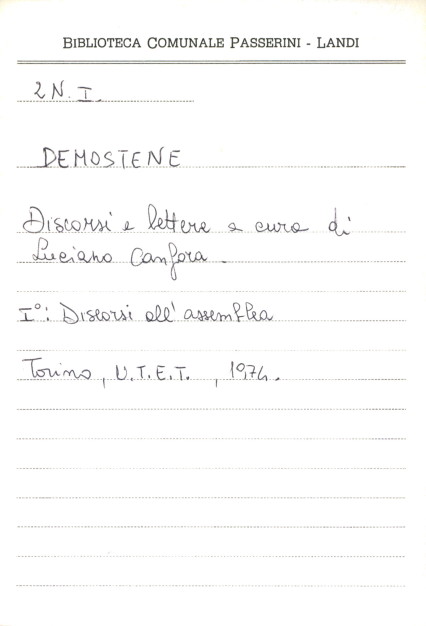 BIBLIOTECA COMUNALE PASSERINI - LANDI
2 N. I.
DEMOSTENE
Discorsi e lettere a cura di
Luciano Canfora.
I°: Discorsi all'assemblea
Torino, U.T.E.T., 1974.